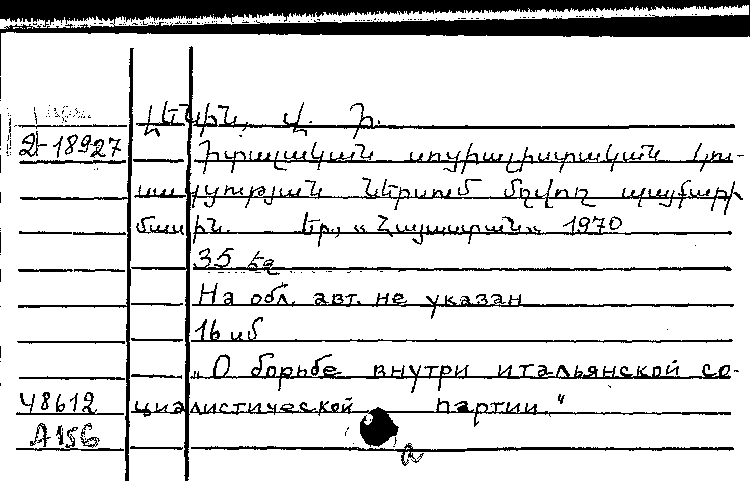 арм.
Լենին, Վ. Ի.
2-18927
Իտալական սոցիալիստական կու-
սակցության ներսում մղվող պայքարի
մասին. Եր., «Հայաստան» 1970
35 էջ
На обл. авт. не указан
16 иб
„О борьбе внутри итальянской со-
циалистической партии."
48612
А 156